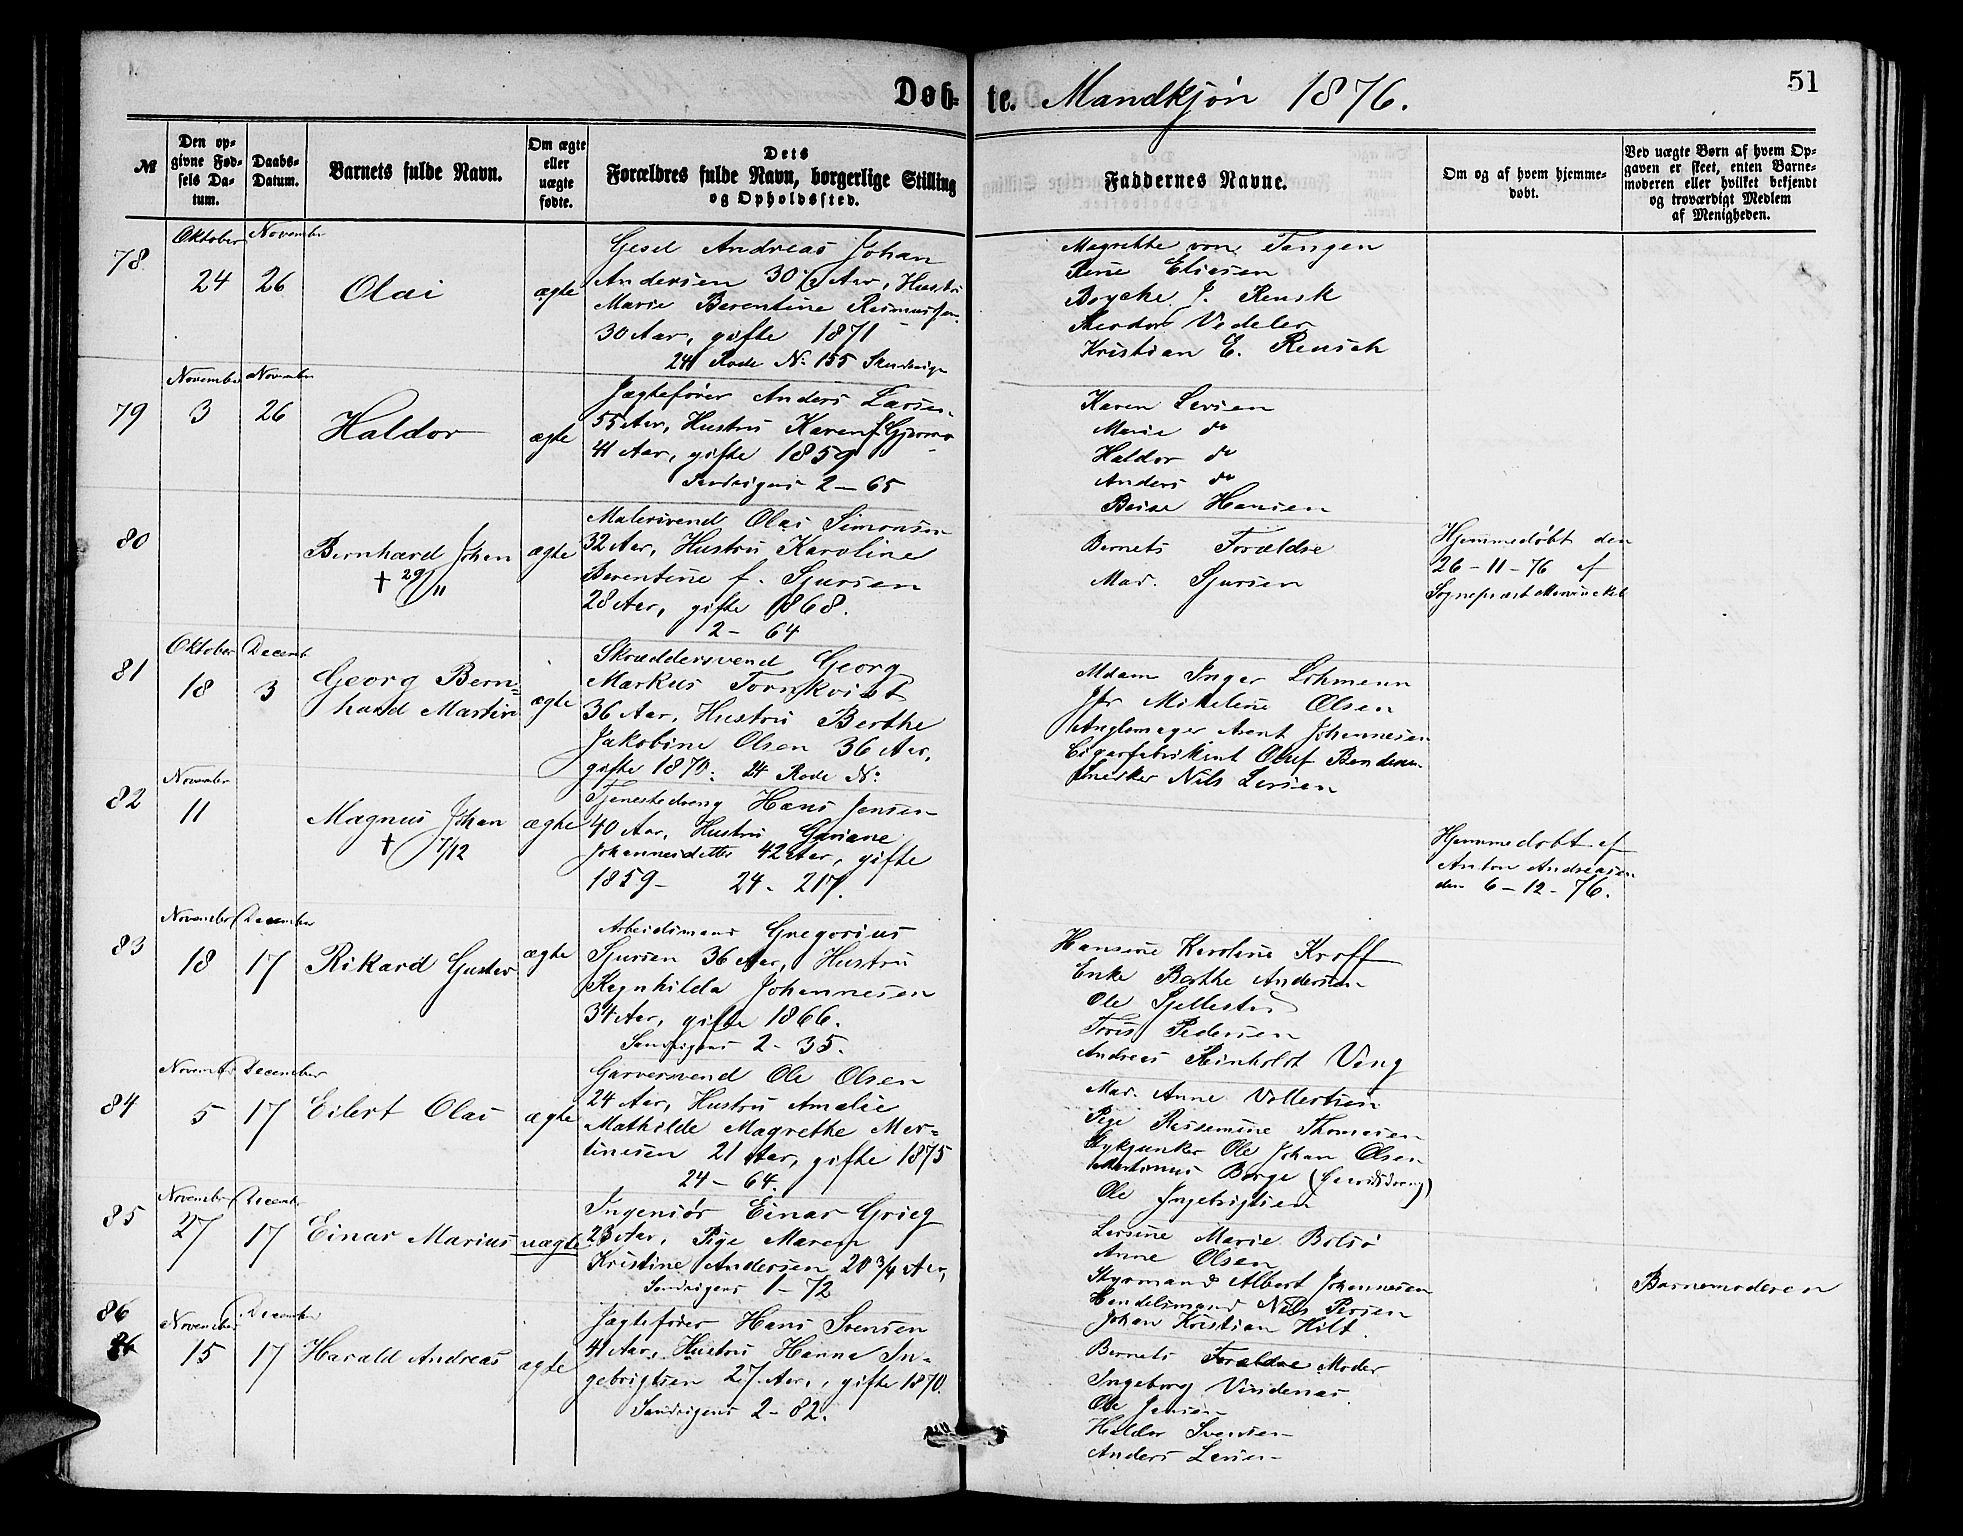 Døb- te. Mandkjøn 1876. 51
№
Den op-
givne Fød-
sels Da-
tum.
Daabs-
Datum.
Barnets fulde Navn.
Om ægte
eller
uægte
fødte.
Dets
Forældres fulde Navn, borgerlige Stilling
og Opholdssted.
Faddernes Navne.
Om og af hvem hjemme-
døbt.
Ved uægte Børn af hvem Op-
gaven er skeet, enten Barne-
moderen eller hvilket bekjendt
og troværdigt Medlem
af Menigheden.
78
Oktober November
24 26 Olai ægte
Gesel Andreas Johan
Andersen 30 1/2 Aar, Hustru
Marie Berentine Rasmussen
30 Aar, gifte 1871
24 Rode No 155
Magrethe von Tangen
Rine Eliesen
J. Rensk
Vedeler
Kristian E. Reusch
79
November November
3 26 Haldor ægte
Jægtefører Anders Larsen
55 Aar, Hustru Karen f.
41 Aar, gifte 1859
Sandvigens 2 - 65
Karen Larsen
Marie do
Haldor do
Anders do
Hansen
80
Bernhard Johan ægte
† 29/11
Malersvend Olai Simonsen
32 Aar, Hustru Karoline
Berentine f. Sjursen
28 Aar, gifte 1868.
2 - 64
Barnets Forældre
Mad. Sjursen
Hjemmedøbt den
26-11-76 af
Sognepræst
81
Oktober Decemb
18 3 Georg Bern=
hard Martin ægte
Skræddersvend Georg
Markus Tornkvist
36 Aar, Hustru Berthe
Jakobine Olsen 36 Aar,
gifte 1870. 24 Rode No
Mdam Inger Lohmann
Jfr Mikeline Olsen
Arent Johannesen
Cigarfabrikant Oluf
Snedker Nils Larsen
82
November
11 Magnus Johan ægte
† 7/12
Tjenestedreng Hans Jensen
40 Aar, Hustru Guriane
Johannesdatter 42 Aar, gifte
1859 - 24 - 217.
Hjemmedøbt af
Anton Andreasen
den 6-12-76.
83
November December
18 17 Rikard Gustav ægte
Arbeidsmand Gregorius
Sjursen 36 Aar, Hustru
Ragnhilda Johannesen
34 Aar, gifte 1866.
Sandvigens 2 - 35.
Hansine Karoline Kroff
Enke Berthe Andersen
Ole
Pedersen
Andreas Reinholdt Ving
84
November December
5 17 Eilert Olai ægte
Garversvend Ole Olsen
24 Aar, Hustru Amalie
Mathilde Magrethe Mar-
tinesen 21 Aar, gifte 1875
24 - 64.
Mad. Anne Vollertsen
Pige Thomasen
Stykjunker Ole Johan Olsen
Martinus Borge
Ole Ingebrigtsen
85
November Decemb
27 17 Einar Marius uægte
Ingeniør Einar Grieg
23 Aar, Pige Maren
Kristine Andersen 20 3/4 Aar,
Sandvigens 1 - 72
Larsine Marie Bolsø
Anne Olsen
Styrmand Albert Johannesen
Handelsmand Nils Persen
Johan Kristian Hilt.
Barnemoderen
86
November December
86 15 17 Harald Andreas ægte
Jægtefører Hans Svensen
41 Aar, Hustru Hanna In-
gebrigtsen 27 Aar, gifte 1870.
Sandvigens 2 - 82.
Barnets Forældre Moder
Ingeborg Vindenas
Ole Jansen
Haldor Svensen
Anders Larsen